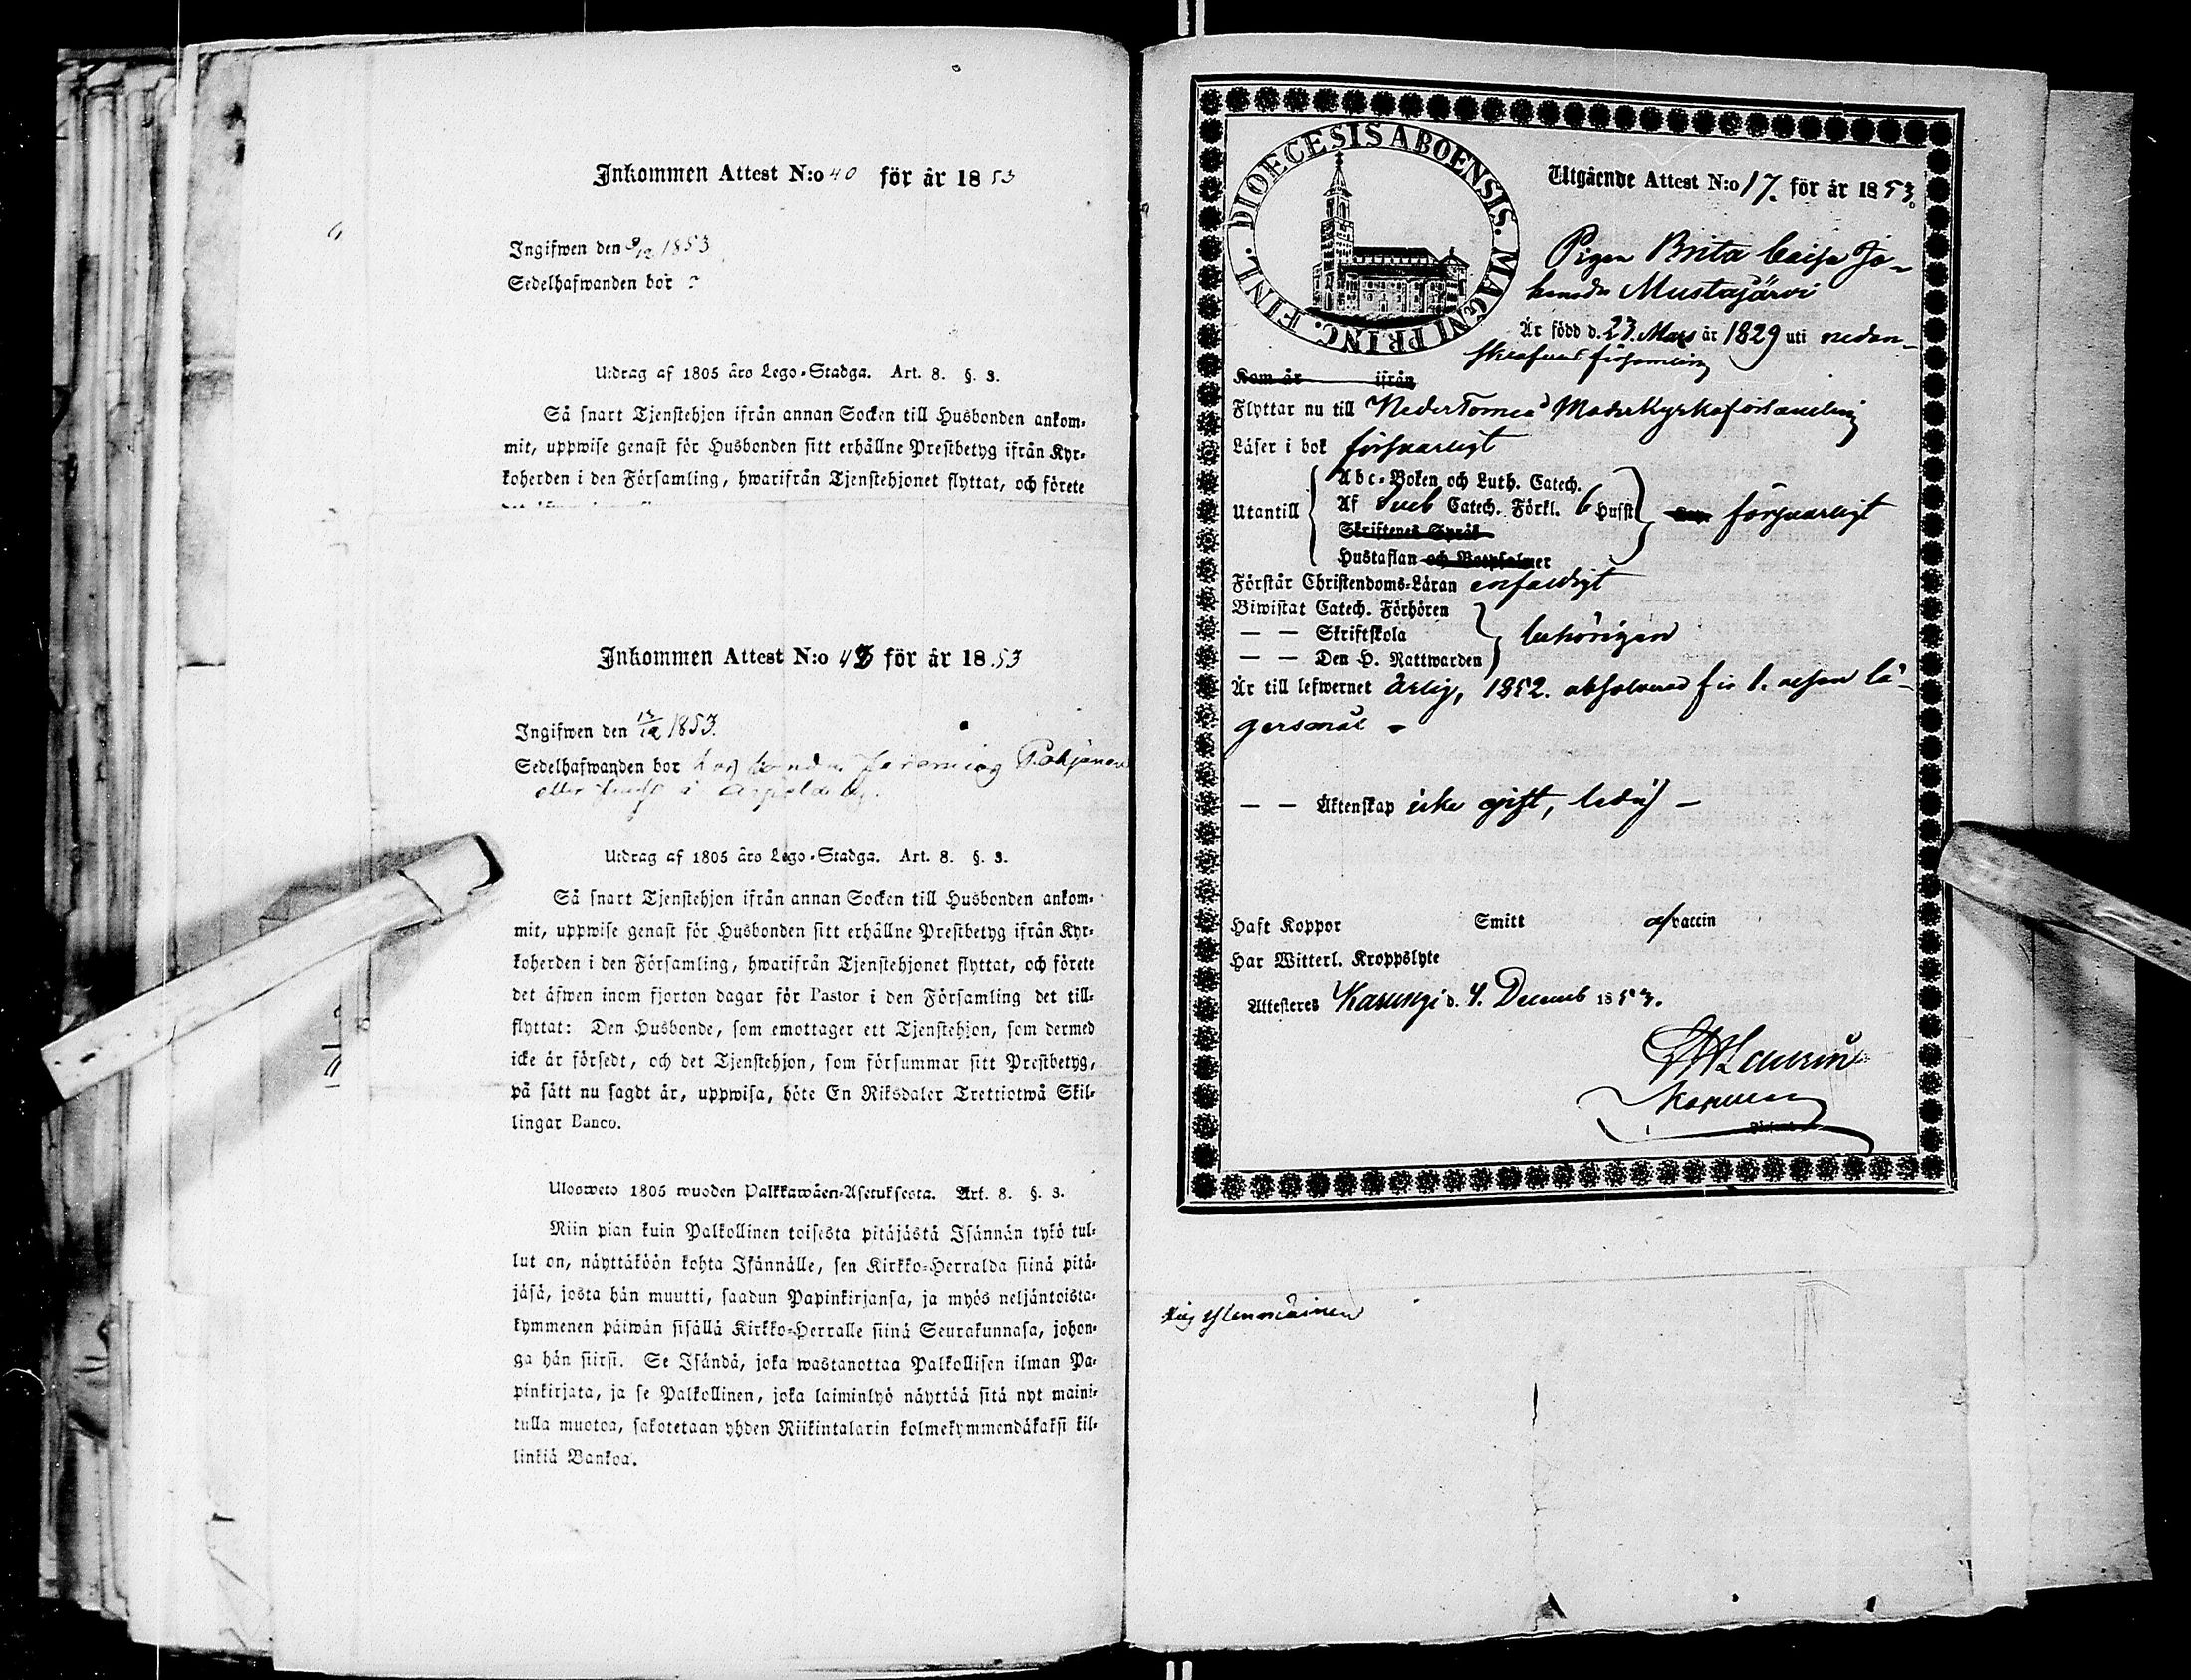 Inkommen Attest N:o 40 för år 1853
Ingifwen den 9/12 1853
Sedelhafwanden bor ?
Utdrag af 1805 års Lego-Stadga. Art. 8. §. 3.
Så snart Tjenstehjon ifrån annan Socken till Husbonden ankom-
mit, uppwise genast för Husbonden sitt erhållne Prestbetyg ifrån Kyr-
koherden i den Församling, hwarifrån Tjenstehjonet flyttat, och förete
Inkommen Attest N:o 43 för år 1853
Ingifwen den 13/12 1853.
Sedelhafwanden bor hos Pohjanen
eller
Utdrag af 1805 års Lego-Stadga. Art. 8. §. 3.
Så snart Tjenstehjon ifrån annan Socken till Husbonden ankom-
mit, uppwise genast för Husbonden sitt erhållne Prestbetyg ifrån Kyr-
koherden i den Församling, hwarifrån Tjenstehjonet flyttat, och förete
det äfwen inom fjorton dagar för Pastor i den Församling det till-
flyttat: Den Husbonde, som emottager ett Tjenstehjon, som dermed
icke är försedt, och det Tjenstehjon, som försummar sitt Prestbetyg,
på sätt nu sagdt är, uppwisa, böte En Riksdaler Trettiotwå Skil-
lingar Banco.
Ulosweto 1805 wuoden Palkkawäen-Asetuksesta. Art. 8. §. 3.
Niin pian kuin Palkollinen toisesta pitäjästä Isännän tykö tul-
lut on, näyttäköön kohta Isännälle, sen Kirkko-Herralda siinä pitä-
jäsä, josta hän muutti, saadun Papinkirjansa, ja myös neljäntoista-
kymmenen päiwän sisällä Kirkko-Herralle siinä Seurakunnasa, johon-
ga hän siirsi. Se Isändä, joka wastanottaa Palkollisen ilman Pa-
pinkirjata, ja se Palkollinen, joka laiminlyö näyttää sitä nyt maini-
tulla muotoa, sakotetaan yhden Riikintalarin kolmekymmendäkaksi kil-
linkiä Bankoa.
DIOECESIS ABOENSIS. MAGNI PRINC. FINL.
Utgående Attest N:o 17. för år 1853.
Pigan Brita Caisa Jo-
hansdr Mustajärvi
Är född d. 23. Mars år 1829 uti nedan-
skrefne församling
Kom år ifrån
Flyttar nu till NederTorneå Moderkyrkoförsamling
Läser i bok försvarligt
Utantill
Abc-Boken och Luth. Catech.
Af Sveb Catech. Förkl. 6 Hufst
Skriftenes Språk
Hustaflan och Botpsalmer
försvarligt
Förstår Christendoms-Läran enfaldigt
Biwistat Catech. Förhören
— — Skriftskola
— — Den H. Nattwarden
behörigen
Är till lefwernet ärlig, 1852. absolverad för 1. resan lä-
gersmål -
— — Äktenskap icke gift, ledig -
Haft Koppor Smitt af vaccin
Har Witterl. Kroppslyte
Attesteres Karungi d. 4. Decemb 1853.